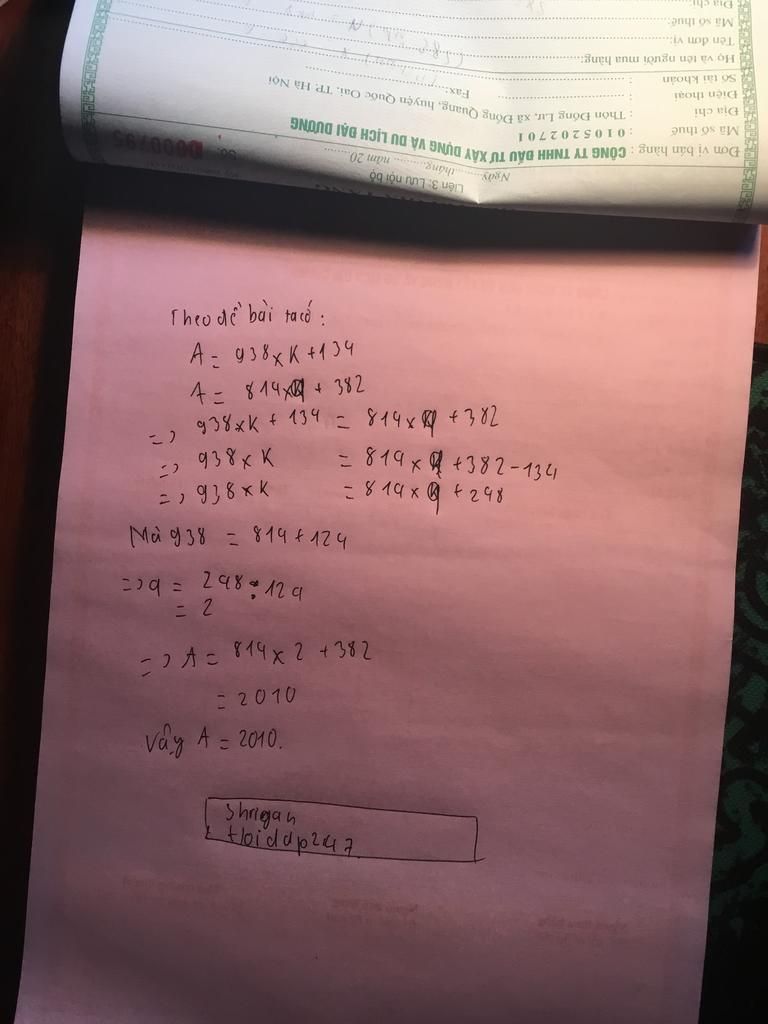 Địa chỉ:
Mã số thuế:
Tên đơn vị:
Họ và tên người mua hàng:
Số tài khoản :
Điện thoại : Fax:
Địa chỉ : Thôn Đồng Lư, xã Đồng Quang, huyện Quốc Oai, TP. Hà Nội
Mã số thuế : 0105202701
Đơn vị bán hàng : CÔNG TY TNHH ĐẦU TƯ XÂY DỰNG VÀ DU LỊCH ĐẠI DƯƠNG
Ngày tháng năm 20
Liên 3: Lưu nội bộ
Số: 0000795
Theo đề bài ta có:
A = 938 x K + 134
A = 814 x q + 382
=> 938 x K + 134 = 814 x q + 382
=> 938 x K = 814 x q + 382 - 134
=> 938 x K = 814 x q + 248
Mà 938 = 814 + 124
=> q = 248 : 124
= 2
=> A = 814 x 2 + 382
= 2010
Vậy A = 2010.